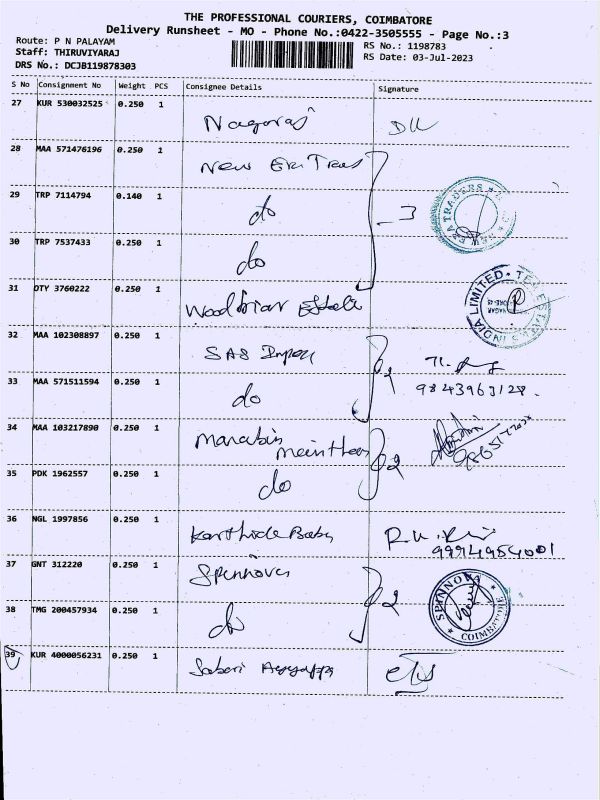 THE PROFESSIONAL COURIERS, COIMBATORE
Delivery Runsheet - MO - Phone No.:0422-3505555 - Page No.:3
Route: P N PALAYAM
RS No.: 1198783
Staff: THIRUVIYARAJ
RS Date: 03-Jul-2023
DRS No.: DCJB119878303
S No Consignment No Weight PCS Consignee Details Signature
27 KUR 530032525 0.250 1
Nagaraj
28 MAA 571476196 0.250 1
New Era Traders
29 TRP 7114794 0.140 1
do
3
30 TRP 7537433 0.250 1
do
31 DTY 3760222 0.250 1
Woodbriar Estate
32 MAA 102308897 0.250 1
SAS
2
33 MAA 571511594 0.250 1
do
9843963128.
34 MAA 103217890 0.250 1
2
35 PDK 1962557 0.250 1
do
36 NGL 1997856 0.250 1
Karthick Babu
9994954001
37 GNT 312220 0.250 1
Spinnova
2
SPINNOVA
COIMBATORE
38 TMG 200457934 0.250 1
do
39 KUR 4000056231 0.250 1
Saberi Ayyappa